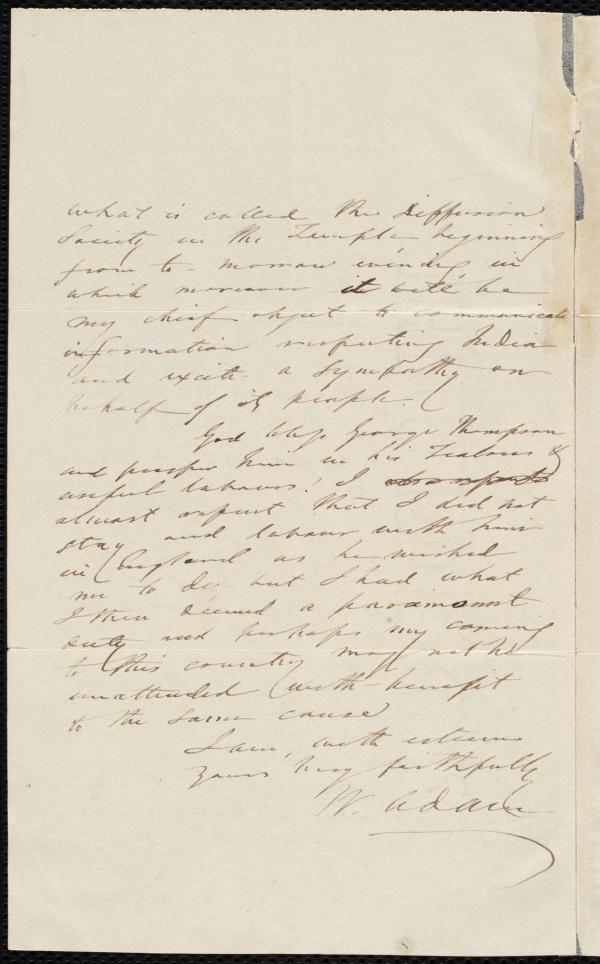 what is called the Diffusion
Society in the Temple beginning
from to-morrow evening, in
which moreover it will be
my chief object to communicate
information respecting India
and excite a sympathy on
behalf of its people.
God bless George Thompson
and prosper him in his zealous &
useful labours! I
almost repent that I did not
stay and labour with him
in England as he wished
me to do, but I had what
I then deemed a paramount
duty and perhaps my coming
to this country may not be
unattended with benefit
to the same cause
I am, with esteem
Yours very faithfully
W. Adam